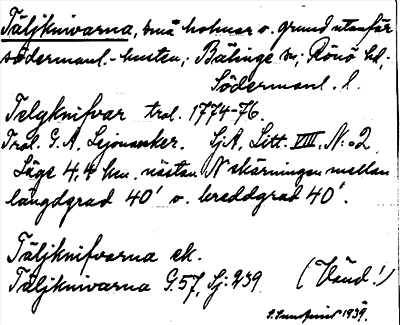 Täljknivarna, små holmar o. grund utanför
södermanl.-kusten; Bälinge sn; Rönö hd,
Södermanl. l.
Telgknifvar trol. 1774-76.
Trol. G. A. Lejonanker. SjA, Litt. VIII, N:o 2
Läge 4,4 km. nästan N skärningen mellan
längdgrad 40' o. breddgrad 40'.
Täljknifvarna ek.
Täljknivarna G. 57, Sj: 239 (Vänd!)
1939.